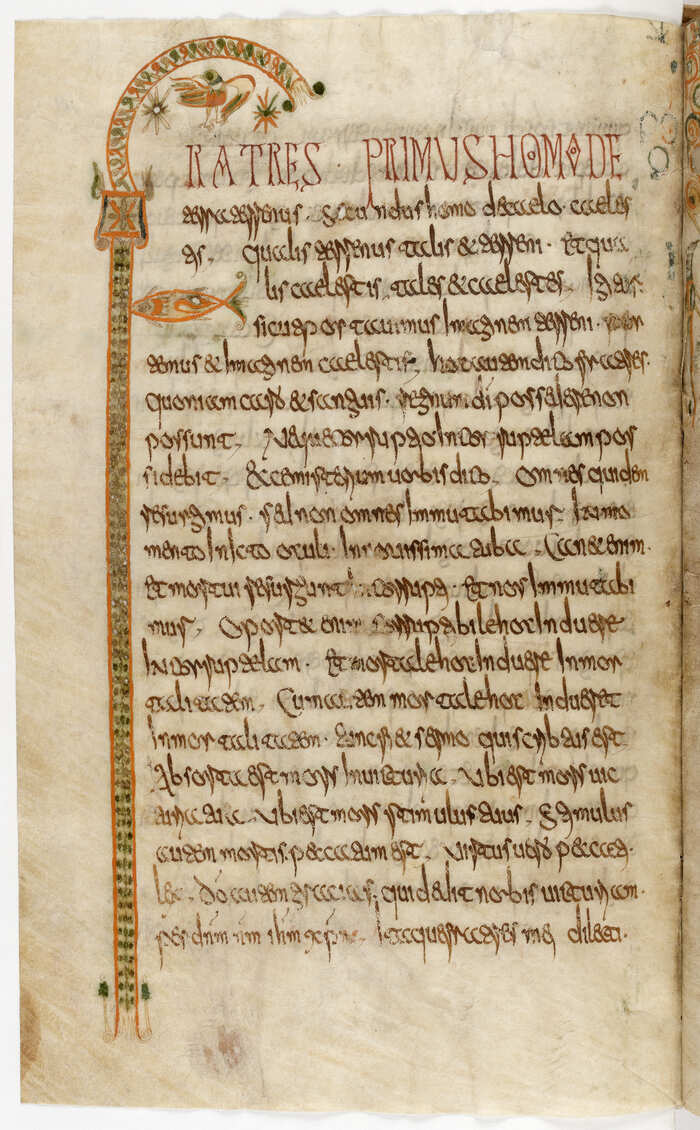 FRATRES PRIMUS HOMO DE
terra terrenus. Secundus homo de caelo caeles
tis. Qualis terrenus talis & terreni. Et qua
lis caelestis. tales & caelestes. Igitur
sicut portauimus imaginem terreni. por
temus & imaginem caelestis. hoc autem dico fratres.
Quoniam caro & sanguis. regnum di possedere non
possunt. Neque corruptio incorruptelam pos
sidebit. Ecce misterium uobis dico. Omnes quidem
resurgimus. sed non omnes immutabimur. In mo
mento in icto oculi. In nouissima tuba. Can& enim.
Et mortui resurgunt incorrupti. Et nos immutabi
mur. Oport& enim corruptibile hoc induere
incorruptelam. Et mortale hoc induere inmor
talitatem. Cum autem mortale hoc induerit
inmortalitatem. tunc fi& sermo qui scribtus est
Absorta est mors in uicturia. Ubi est mors uic
turia tua. Ubi est mors stimulus tuus. Stimulus
autem mortis peccatum est. Uirtus uero peccati
lex. Do autem gracias. qui dedit nobis uicturiam.
per dnm nm ihm xpm. Itaque fratres mei dilecti.